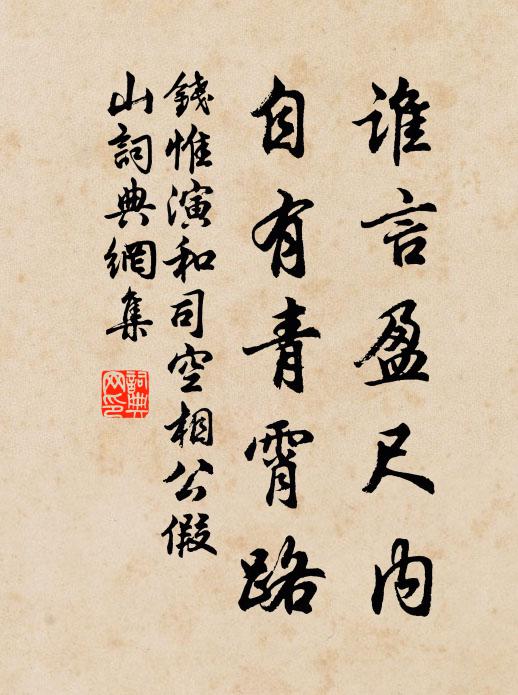 誰言盈尺内
自有青霄路
錢惟演和司空相公假
山詞典網集
詞典
网印